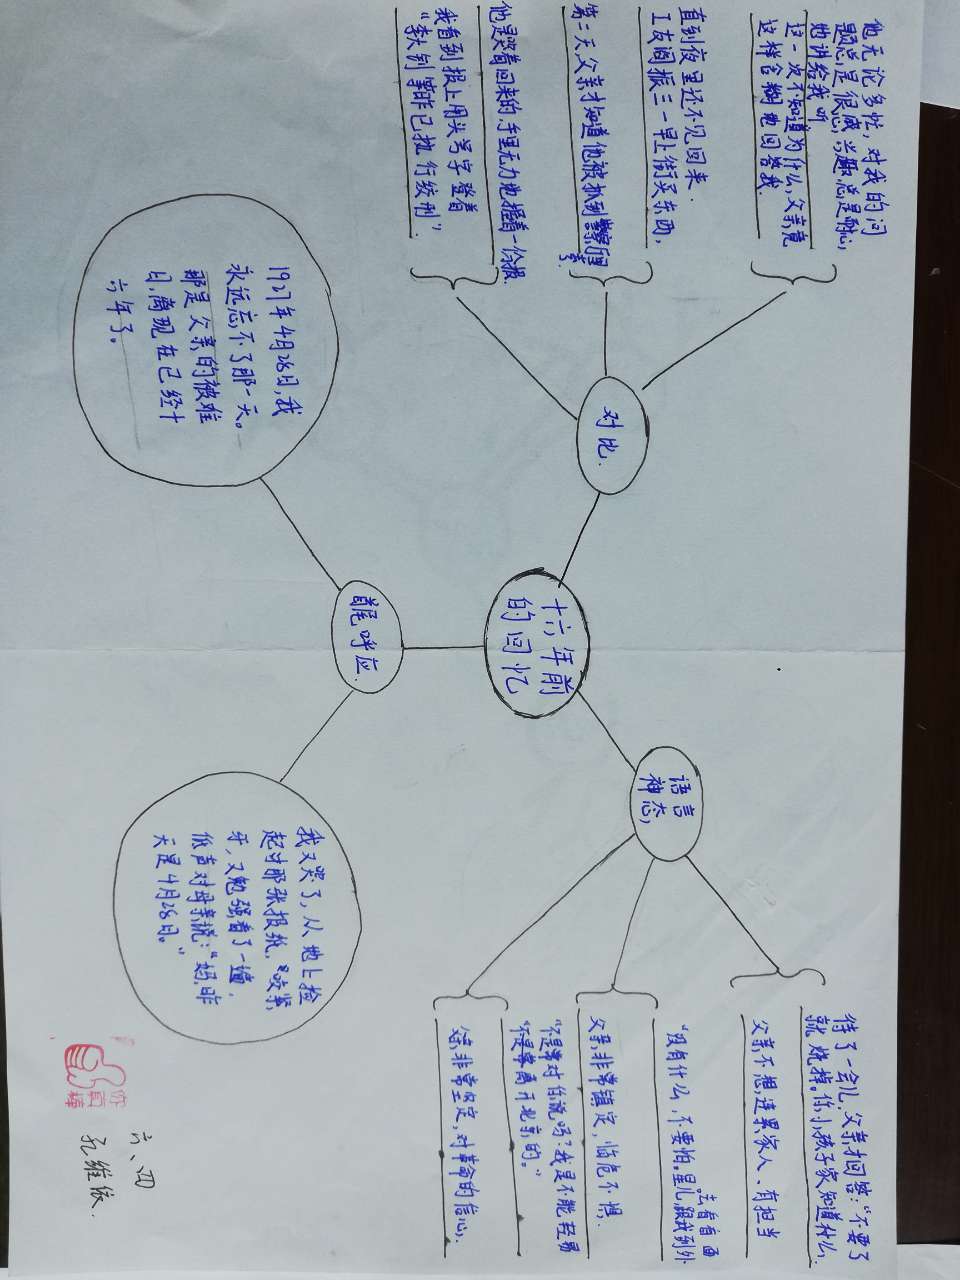 他无论多忙,对我的问
题总是很感兴趣,总是耐心
地讲给我听
这一次不知道为什么,父亲竟
这样含糊地回答我.
直到夜里还不见回来.
工友阎振三一早上街买东西,
第二天,父亲才知道他被抓到警察厅里
去.
他是哭着回来的,手里无力地握着一份报.
我看到报上用头号字登着
“李大钊等昨已执行绞刑”
对比.
十六年前
的回忆
语言
神态
待了一会儿,父亲才回答:“不要了
就烧掉。你小孩子家知道什么.
父亲不想连累家人、有担当
“没有什么,不要怕。星儿,跟我到外
面看看
去
父亲,非常镇定,临危不惧.
“不是常对你说吗?我是不能轻易
离开北京的。”
非常坚定,对革命的信心.
首尾呼应.
1927年4月28日,我
永远忘不了那一天。
那是父亲的被难
日,离现在已经十
六年了。
我又哭了,从地上捡
起那张报纸,咬紧
牙,又勉强看了一遍,
低声对母亲说:“妈,昨
天是4月28日。”
你真棒
六、四
孔维依.